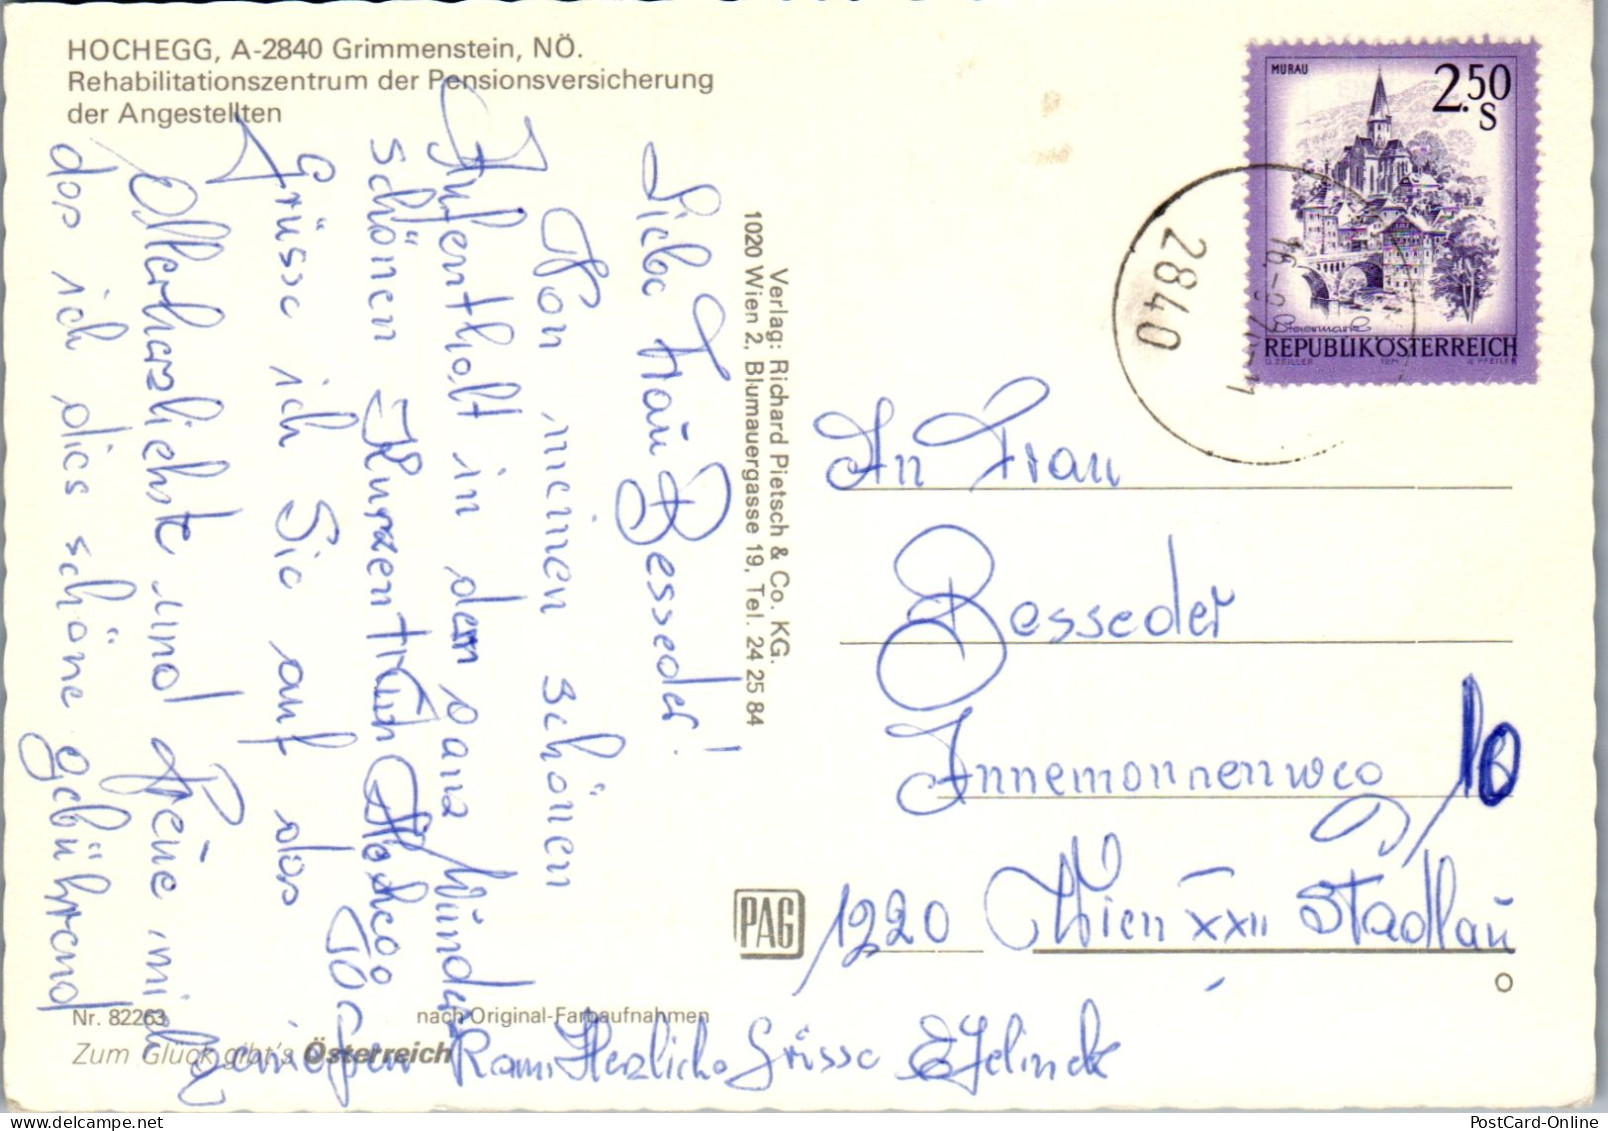 HOCHEGG, A-2840 Grimmenstein, NÖ.
Rehabilitationszentrum der Pensionsversicherung
der Angestellten
Liebe Frau Besseder!
Von meinen schönen
Aufenthalt in dem ganz
schönen Kurzentrum Hochegg
Grüsse ich Sie auf das
Allerherzlichste und freue mich
das ich dies schöne gebührend
geniesen kann Herzliche Grüsse E Jelinek
Verlag: Richard Pietsch & Co. KG.
1020 Wien 2, Blumauergasse 19, Tel. 24 25 84
MURAU
2.50
S
Steiermark
REPUBLIK ÖSTERREICH
2840
An Frau
Besseder
Annemonnenweg 10
1220 Wien XXII Stadlau
PAG
O
Nr. 82263
nach Original-Farbaufnahmen
Zum Glück gibt's Österreich
PostCard-Online